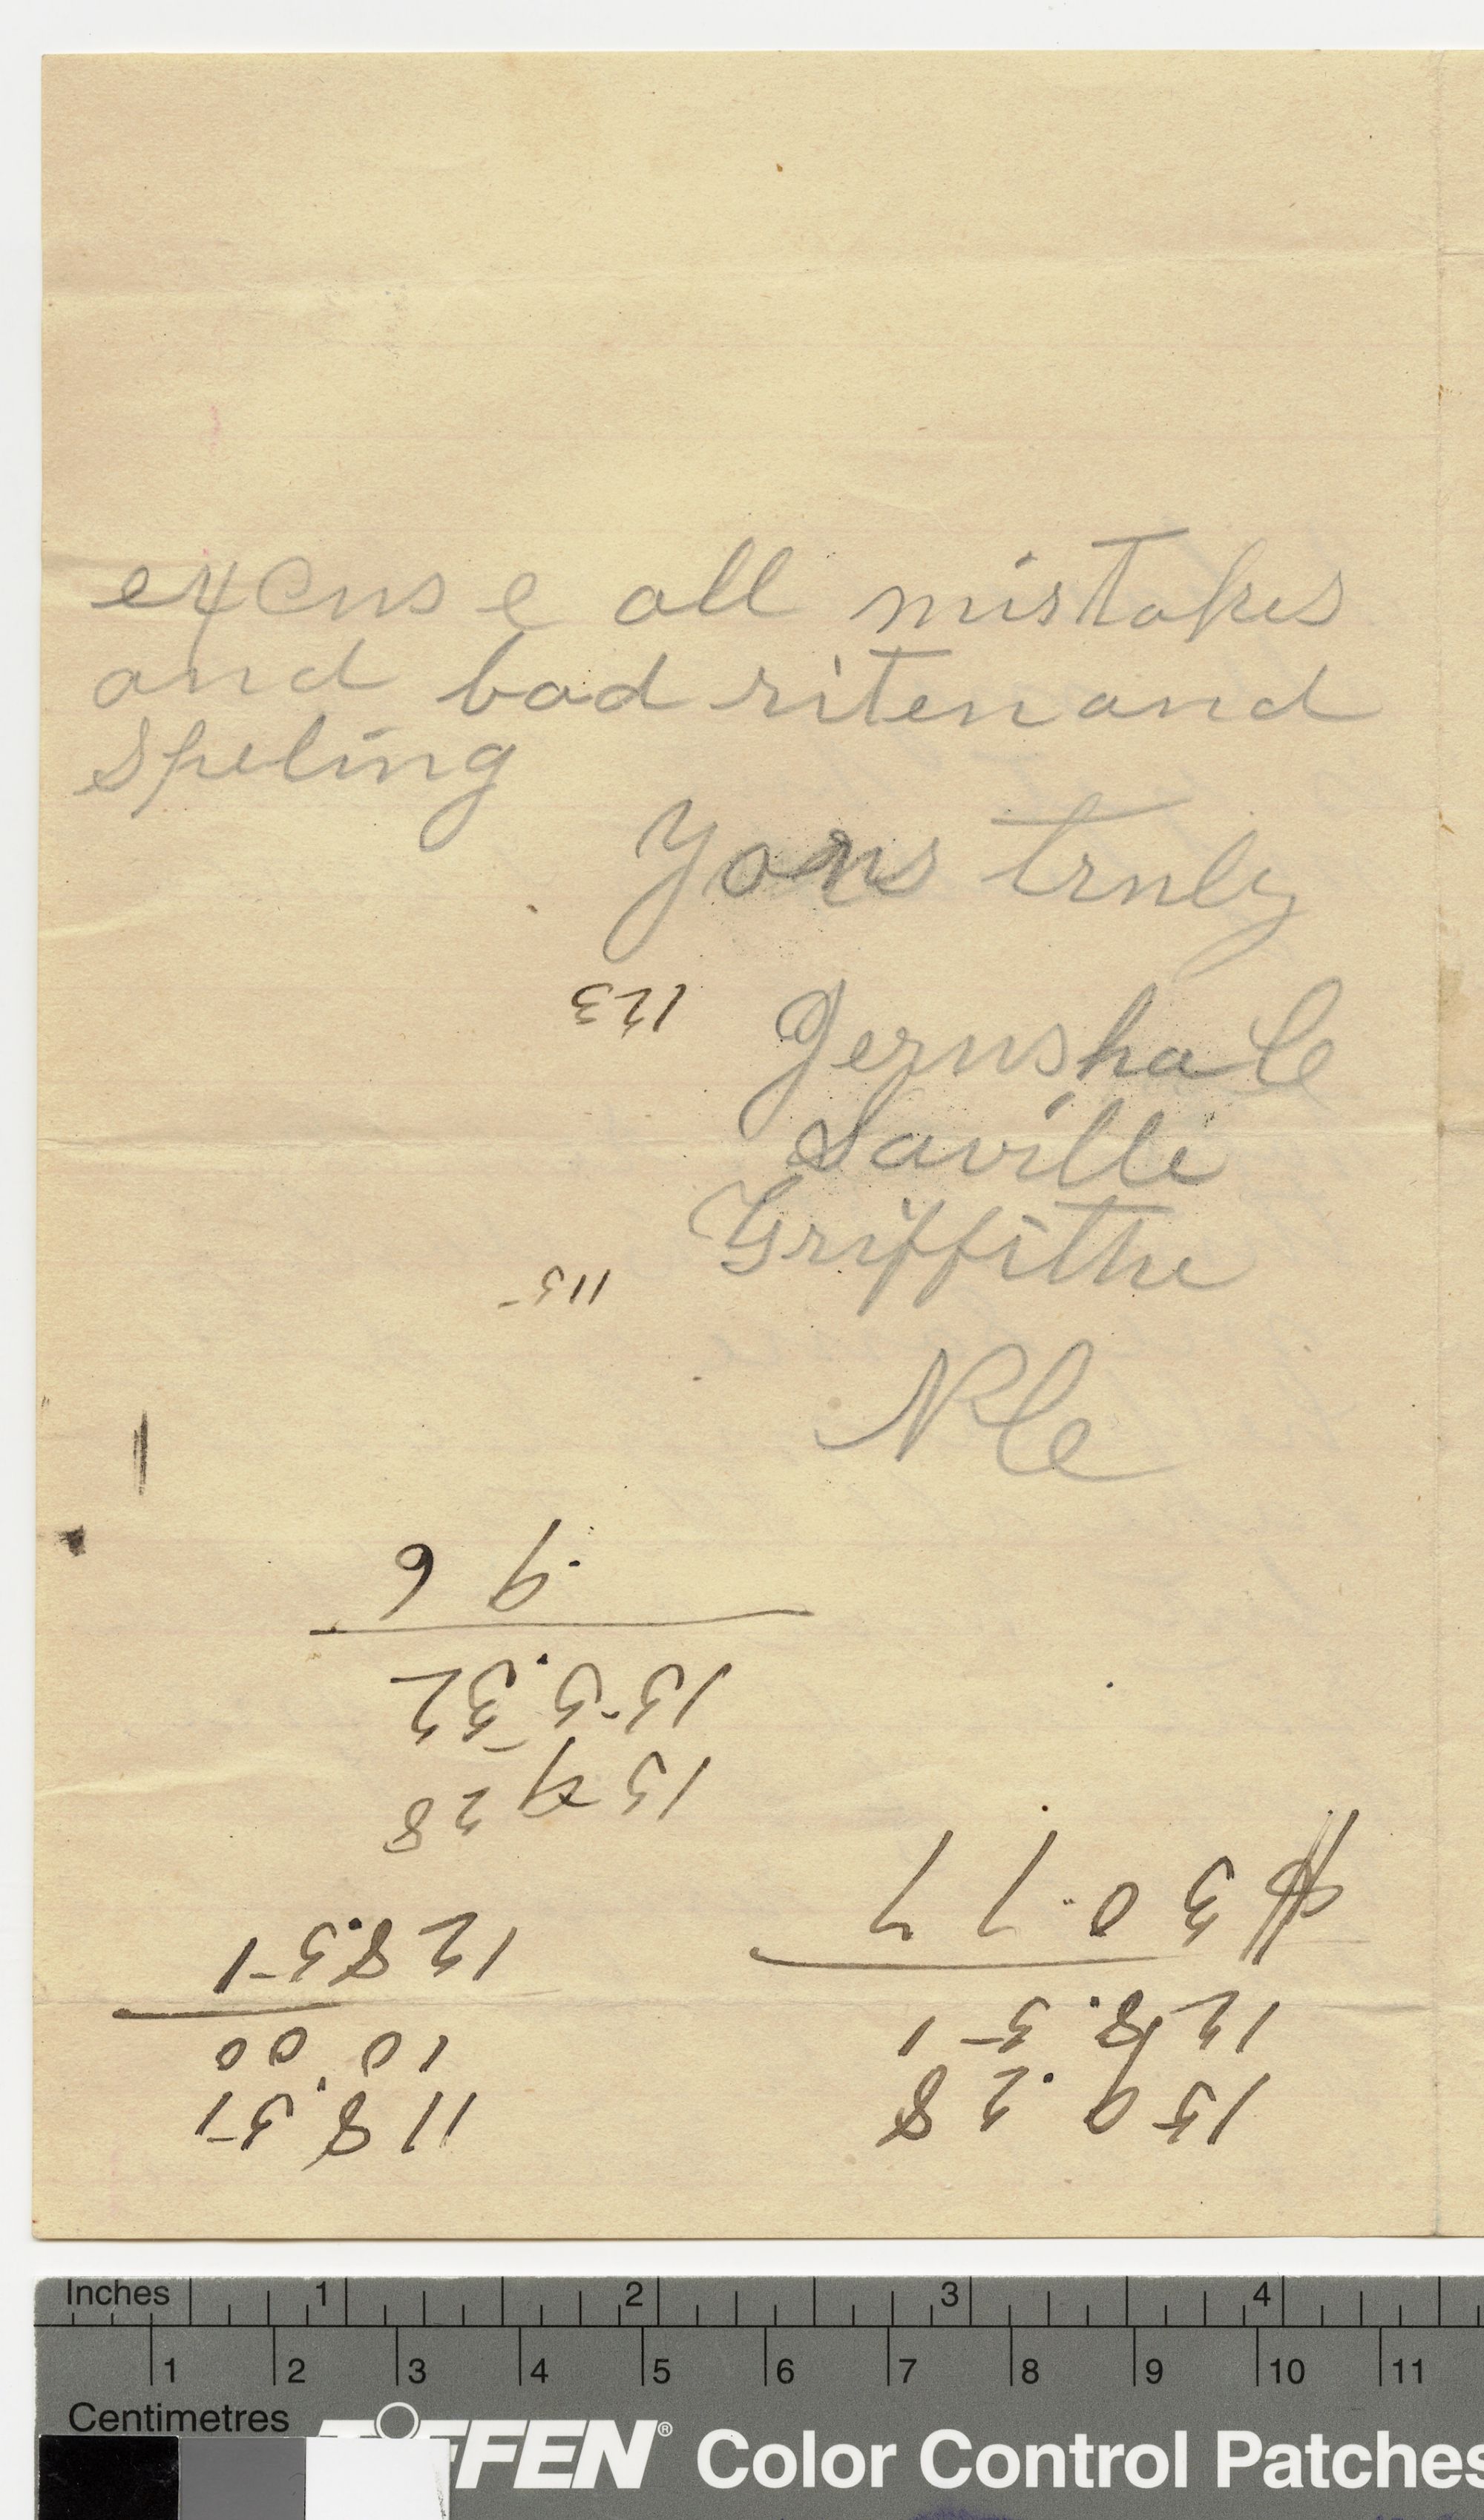 excuse all mistakes
and bad riten and
speling
Yours truly
Jerusha C
Saville
Griffithe
NC
123
115
118.51
10 00
128.51
159.28
128.51
$30.77
155.32
.96
Inches 1 2 3 4
1 2 3 4 5 6 7 8 9 10 11
Centimetres
TIFFEN® Color Control Patches